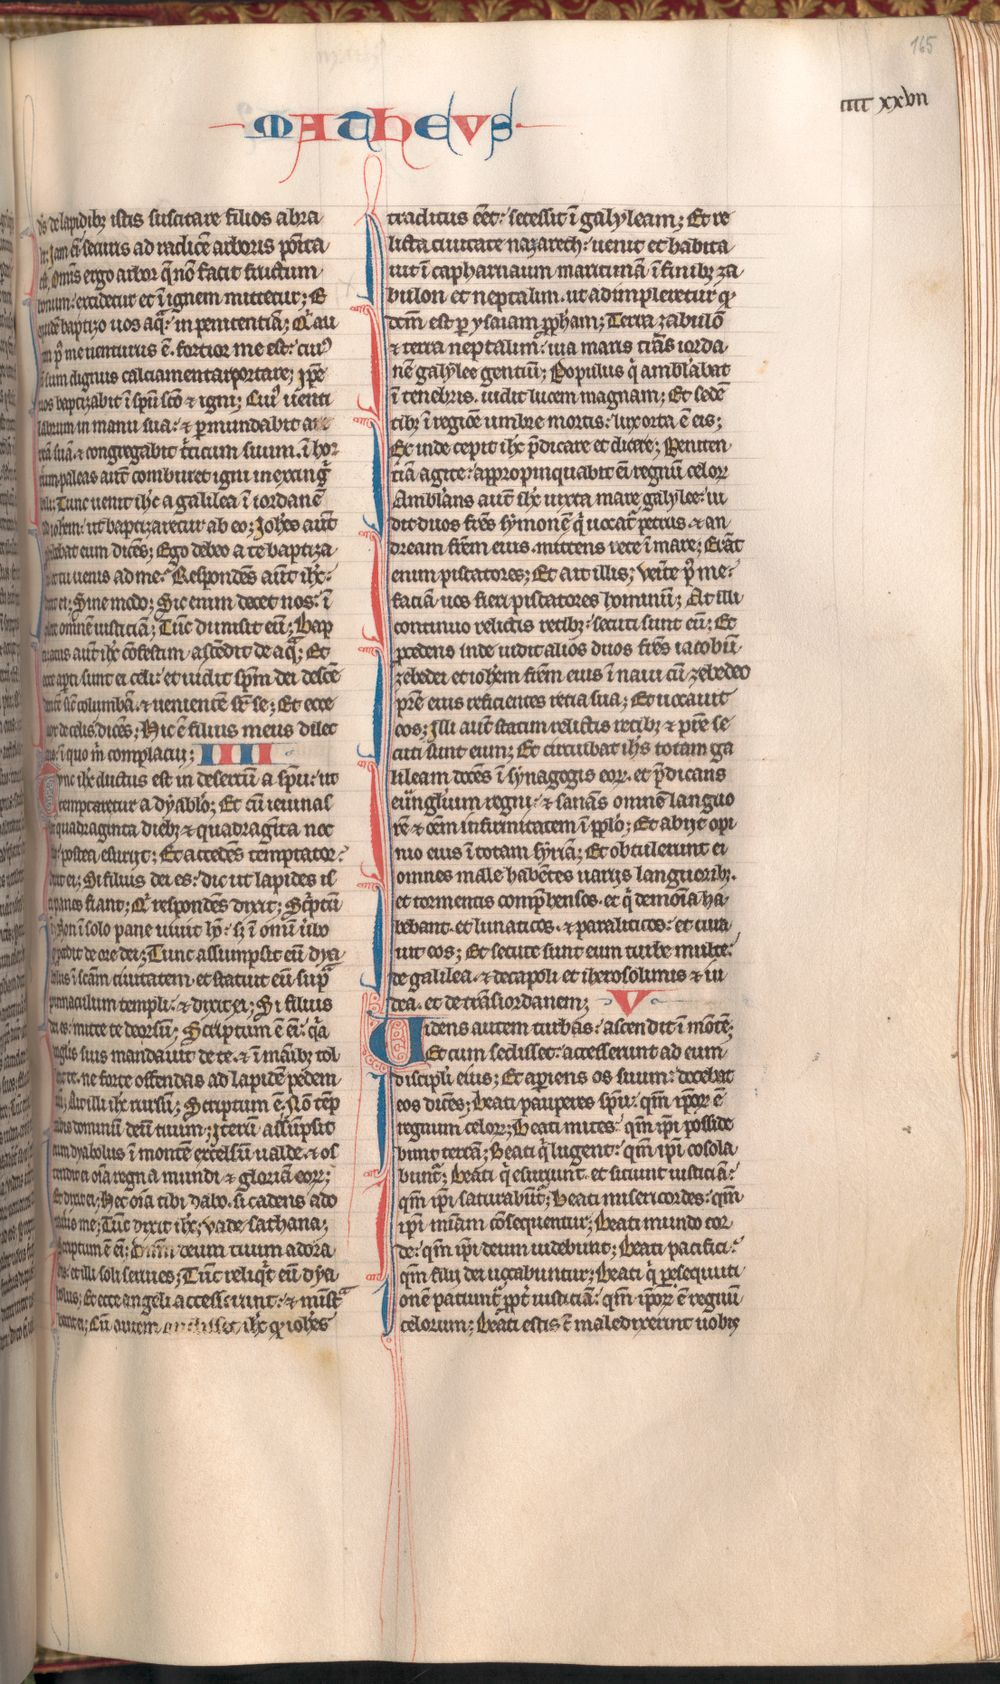 165
IIII XXVII
MATHEVS
ds de lapidibꝫ istis suscitare filios abra
he; Iam eī securis ad radicē arboris posita
est; Omīs ergo arbor q̄ nō facit fructum
bonum: excidetur et ī ignem mittetur; E
quidē baptizo uos aq̄: in penitentiā; Qͥ au
em pꝰ me uenturus ē. fortior me est: cuiꝰ
nō sum dignus calciamenta portare; ipē
uos baptizabit ī spū scō & igni; Cuiꝰ uenti
labrum in manu sua: & pmundabit are
am suā. & congregabit tͥticum suum. ī hor
reum. paleas aūt comburet igni inexting
bili; Tunc uenit ihc a galilea ī iordanē
ad iohem: ut baptizaretur ab eo; Iohes aūt
phibebat eum dicēs; Ego debeo a te baptiza
ri et tu uenis ad me: Respondēs aūt ihc:
dixit ei; Sine modo; Sic enim decet nos: ī
plere omnē iusticiā; Tūc dimisit eū; Bap
tizatus aūt ihc cōfestim ascēdit de aq̄; Et
ecce apti sunt ei celi: et uidit spm dei descē
dentē sic columbā. & uenientē sr̄ se; Et ecce
uox de celis dicēs; Hic ē filius meus dilec
tus: ī quo m̄ complacui; IIII
Tunc ihc ductus est in desertū a spū: ut
temptaretur a dyablo; Et cū ieiunas
set quadraginta diebꝫ & quadragīta noc
tibꝰ: postea esurijt; Et accedēs temptator:
dixit ei; Si filius dei es: dic ut lapides is
ti panes fiant; Qͥ respondēs dixit; Sc̄ptū
ē; Non ī solo pane uiuit hō: sꝫ ī omī ūbo
qd pcedit de ore dei; Tunc assumpsit eū dya
bolus ī scām ciuitatem. et statuit eū supͣ
pinnaculum templi: & dixit ei; Si filius
dei es: mitte te deorsū; Scriptum ē ei: qͥa
anglis suis mandauit de te. & ī manibꝫ tol
lent te. ne forte offendas ad lapidē pedem
tuū; Ait illi ihc rursū; Scriptum ē; Nō tēp
tabis dominū deū tuum; Iterū assūpsit
eum dyabolus ī montē excelsū ualde. & os
tendit ei oīa regna mundi & gloriā eorꝝ;
Et dixit ei; Hec oīa tibi dabo. si cadens ado
raueris me; Tūc dixit ihc; Vade sathana;
Scriptum ē ei; Dnm deum tuum adora
bis: et illi soli seruies; Tūc reliqͥt eū dya
bolus; Et ecce angeli accesserunt: & mīstͣ
bant ei; Cū autem audisset ihc qꝫ iohes
traditus eēt: secessit ī galyleam; Et re
licta ciuitate nazareth: uenit et habita
uit ī capharnaum maritimā ī finibꝫ za
bulon et neptalim. ut adimpleretur qͩ
dcm est p ysaiam ꝓpham; Terra zabulō
& terra neptalim: uia maris trās iorda
nē galylee gentiū; Populus q̄ amblabat
ī tenebris. uidit lucem magnam; Et sedē
tibꝫ ī regiōe umbre mortis: lux orta ē eis;
Et inde cepit ihc pdicare et dicere; Peniten
tiā agite: appropinquabit eī regnū celorꝝ
Amblans aūt ihc iuxta mare galylee: ui
dit duos frēs symonē q̄ uocatͬ petrus. & an
dream frēm eius. mittens rete ī mare; Erāt
enim piscatores; Et ait illis; Venīte pꝰ me:
faciā uos fieri piscatores hominū; At illi
continuo relictis retibꝫ: secuti sunt eū; Et
pcedens inde uidit alios duos frēs iacobū
zebedei et iohem frēm eius ī naui cū zebedeo
prē eius reficientes retia sua; Et uocauit
eos; Illi aūt statim relictis retibꝫ & prē se
cuti sunt eum; Et circuibat ihs totam ga
lileam docēs ī synagogis eorꝝ. et pdicans
euuglium regni: & sanās omnē languo
rē & oēm infirmitatem ī pplo; Et abijt opi
nio eius ī totam syriā; Et obtulerunt ei
omnes male habētes uarijs languoribꝫ.
et tormentis comphensos. et q̄ demoīa ha
bebant. et lunaticos. & paraliticos: et cura
uit eos; Et secute sunt eum turbe multe:
de galilea. & decapoli et iherosolimis & iu
dea. et de trāsiordanem; V
Videns autem turbas: ascendit ī mōtē;
Et cum sedisset: accesserunt ad eum
discipli eius; Et apiens os suum: docebat
eos dicēs; Beati pauperes spū: qm̄ ipoꝝ ē
regnum celorꝝ; Beati mites: qm̄ ipi posside
bunt terrā; Beati q̄ lugent: qm̄ ipi cōsola
buntͬ; Beati q̄ esuriunt. et sitiunt iusticiā:
qm̄ ipi saturabuntͬ; Beati misericordes: qm̄
ipi miām cōsequentur; Beati mundo cor
de: qm̄ ipi deum uidebunt; Beati pacifici:
qm̄ filij dei uocabuntur; Beati q̄ psequuti
onē patiuntͬ ppt iusticiā: qm̄ ipoꝝ ē regnū
celorum; Beati estis c̄ maledixerint uobis